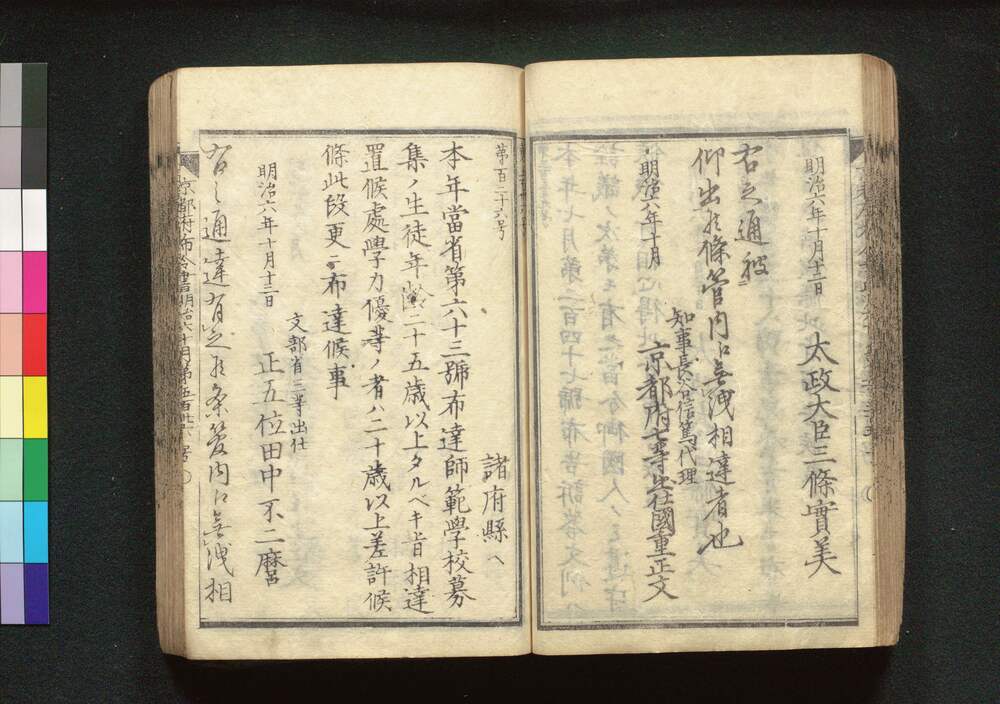 明治六年十月十三日
太政大臣三條實美
右之通被
仰出候條管内江無洩相達者也
明治六年十月
知事長谷信篤代理
京都府七等出仕國重正文
第百二十六号
諸府縣ヘ
本年當省第六十三號布達師範學校募
集ノ生徒年齡二十五歳以上タルベキ旨相達
置候處學力優等ノ者ハ二十歳以上差許候
條此段更ニ布達候事
文部省三等出仕
明治六年十月十三日
正五位田中不二麿
右之通達有之候条管内江無洩相
京都府布令書明治六十月第五百廿六号